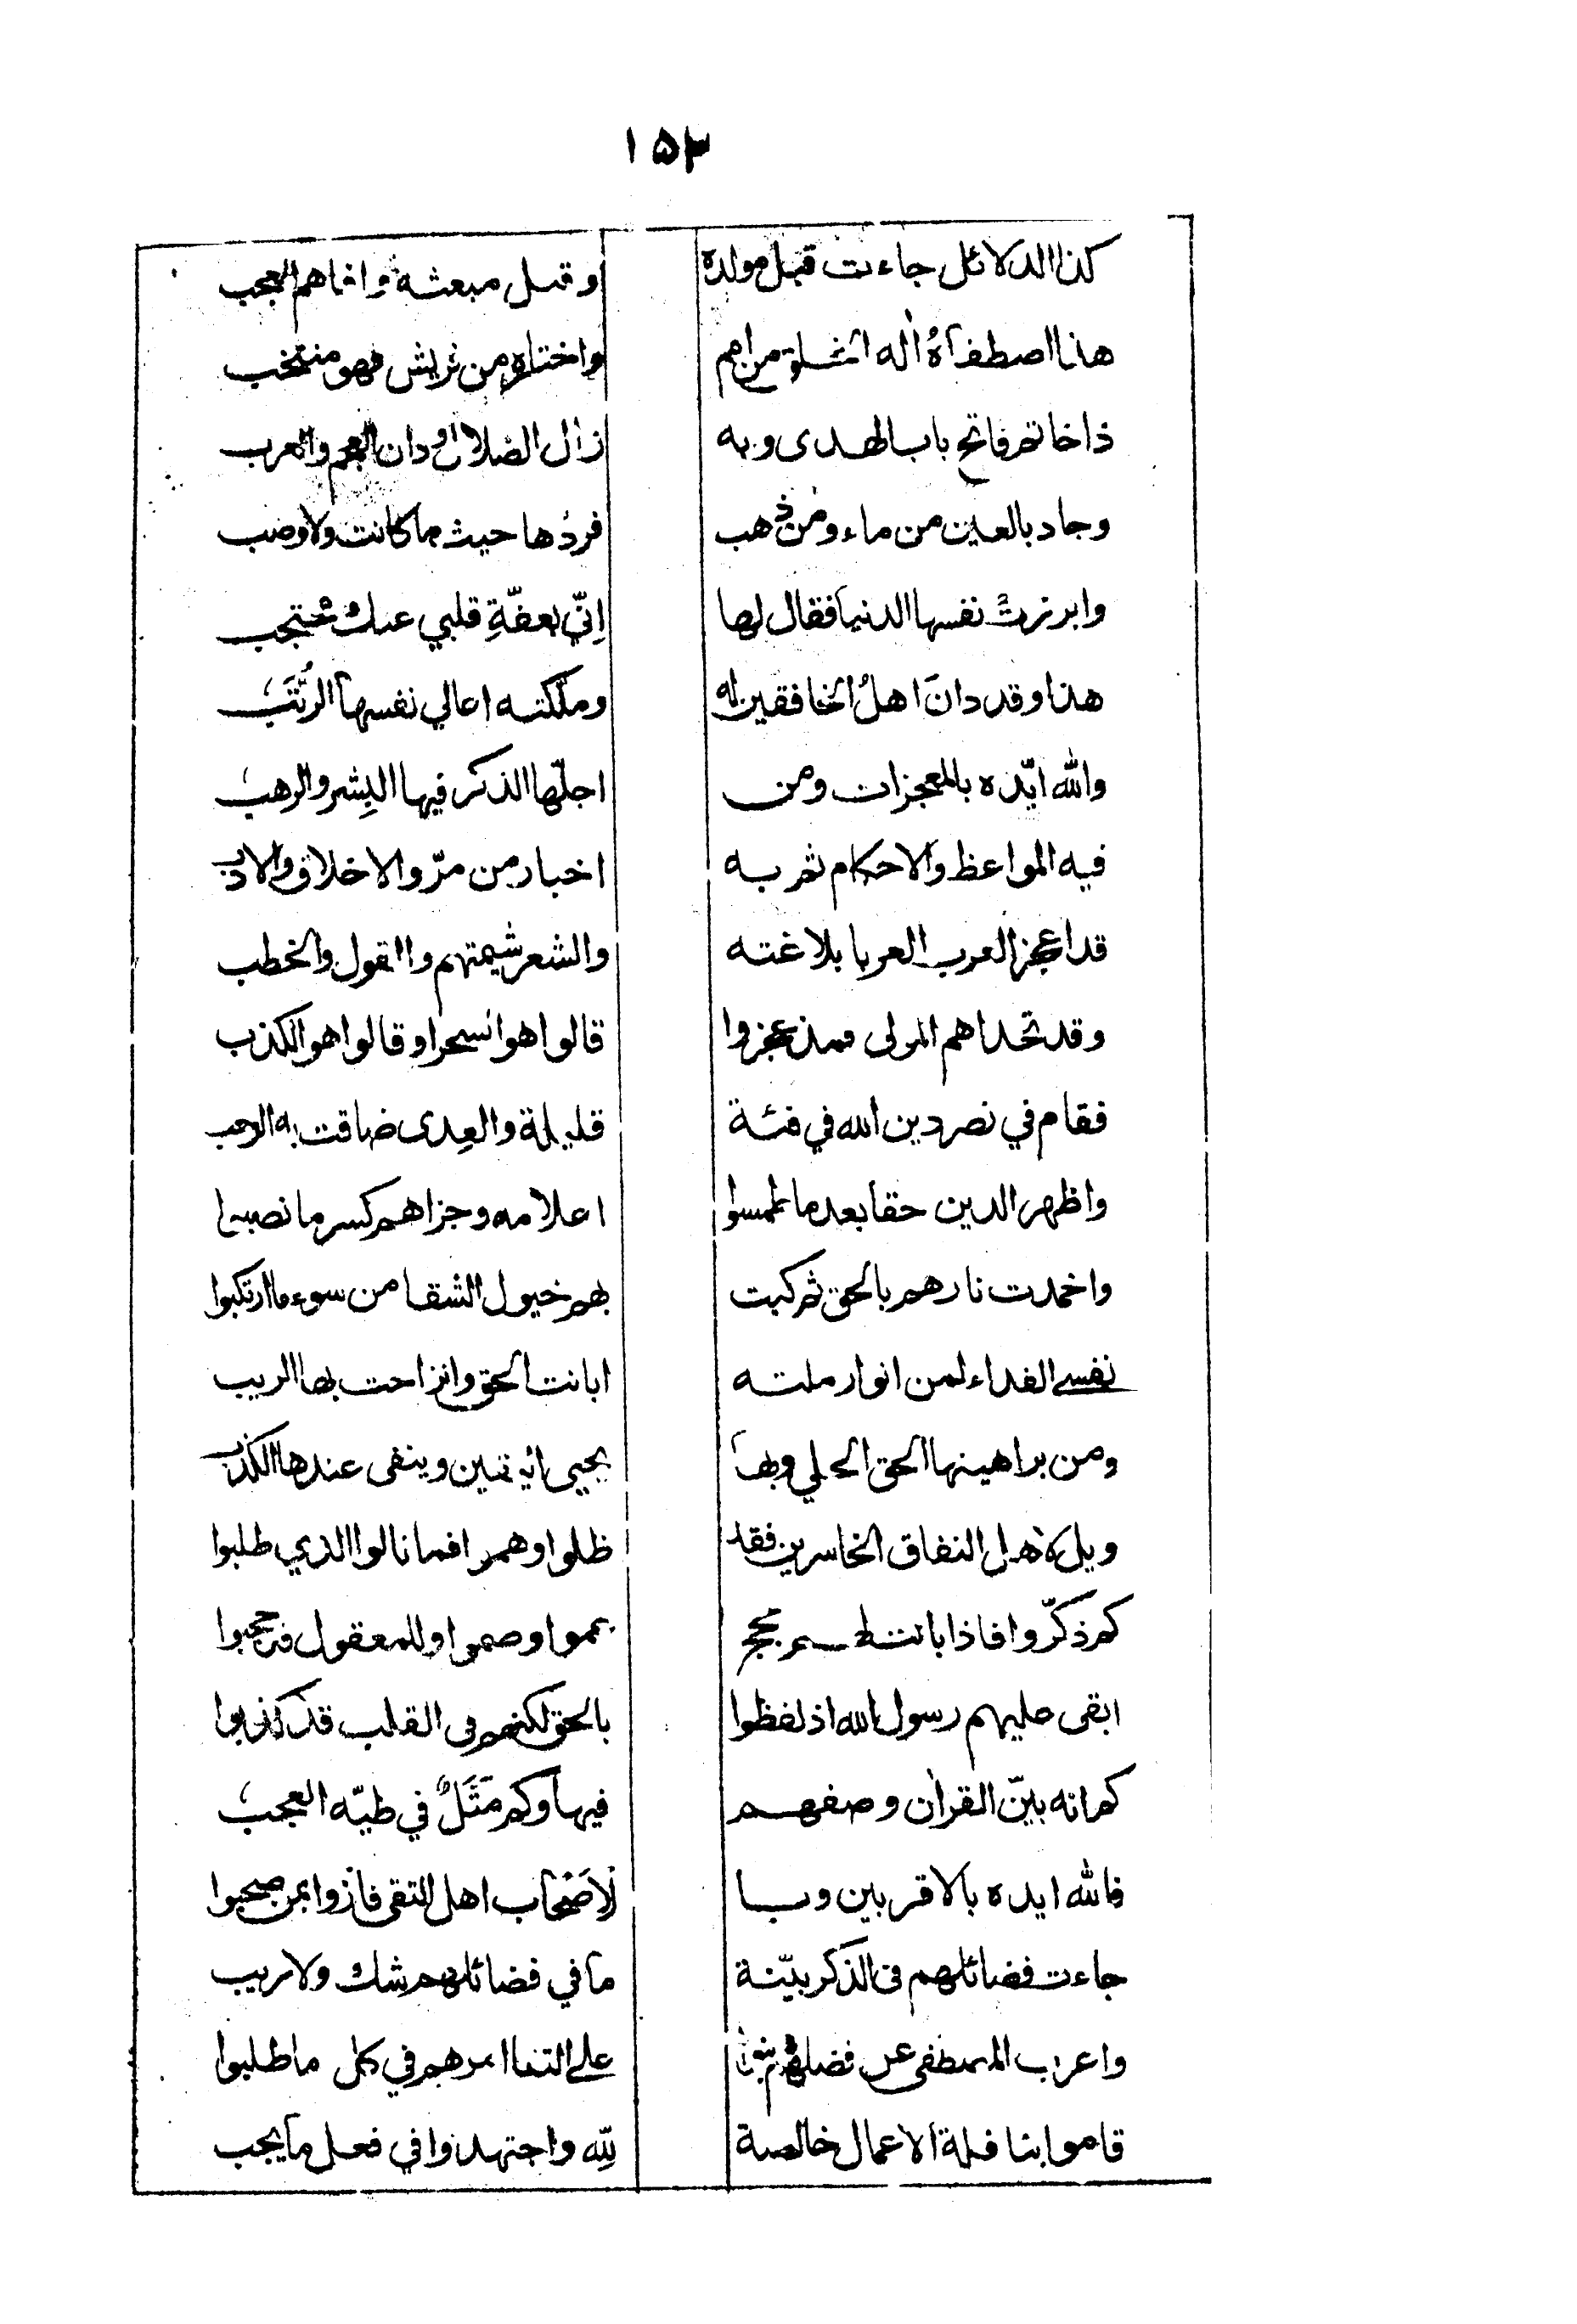 ١٥٣
كذا الدلائل جاءت قبل مولده وقبل مبعثه وافاهم العجب
هذا اصطفاه اله الخلق من امم واختاره من قريش فهو منتخب
ذا خاتم فاتح باب الهدى وبه زال الضلال ودان العجم والعرب
وجاد بالعين من ماء ومن ذهب فردها حيث ما كانت ولا وصب
وابرزت نفسها الدنيا فقال لها اِنّي بعفّةِ قلبي عنك محتجب
هذا وقد دانَ اهلُ الخافقين له وملّكته اعالي نفسها الرُّتَبُ
والله ايّده بالمعجزات ومن اجلّها الذكر فيها البِشر والرهب
فيه المواعظ والاحكام ثم به اخبار من مرّ والاخلاق والادب
قد اعجز العرب العربا بلاغته والشعر شيمتهم والقول والخطب
وقد تحداهم المولى فمذ عجزوا قالوا هو السحر او قالوا هو الكذب
فقام في نصر دين الله في فئة قليلة والعِدى ضاقت به الرحب
واظهر الدين حقا بعد ما طمسوا اعلامه وجزاهم كسر ما نصبوا
واخمدت نارهم بالحق ثم كبت بهم خيول الشقا من سوء ما ارتكبوا
نفسي الفداء لمن انوار ملته ابانت الحق وانزاحت بها الريب
ومن براهينها الحق الجلي وبها يحيى اليقين وينفى عندها الكذب
ويل لاهل النفاق الخاسرين فقد ظلوا وهم فما نالوا الذي طلبوا
كم ذكّروا فاذا بانت لهم حجج عموا وصموا وللمعقول قد حجبوا
ابقى عليهم رسول الله اذ لفظوا بالحق لكنهم في القلب قد كذبوا
كم انه بيّن القرآن وصفهم فيها وكم مَثَلٌ في طيّه العجبُ
فالله ايده بالاقربين وبا لاَصْحَاب اهل التقى فازوا بمن صحبوا
جاءت فضائلهم في الذكر بيّنة ما في فضائلهم شك ولا ريب
واعرب المصطفى عن فضلهم على التقا امرهم في كل ما طلبوا
قاموا بنافلة الاعمال خالصة لِلّه واجتهدوا في فعل ما يجب